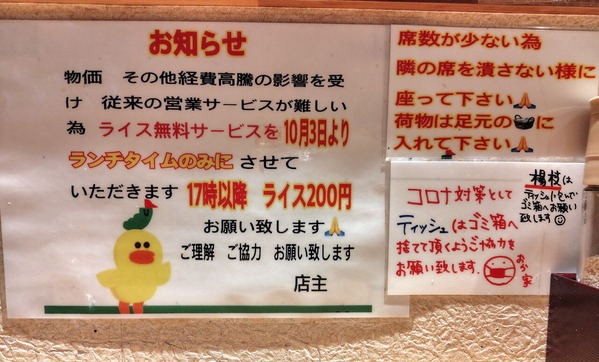 お知らせ
物価　その他経費高騰の影響を受
け　従来の営業サービスが難しい
為　ライス無料サービスを 10月3日より
ランチタイムのみに させて
いただきます 17時以降　ライス200円
お願い致します🙏
ご理解　ご協力　お願い致します
店主
席数が少ない為
隣の席を潰さない様に
座って下さい🙏
荷物は足元の🧺に
入れて下さい🙏
コロナ対策として
ティッシュはゴミ箱へ
捨てて頂くようご協力を
お願い致します.
楊枝は
ティッシュに包んで
ゴミ箱へお願い
致します☺